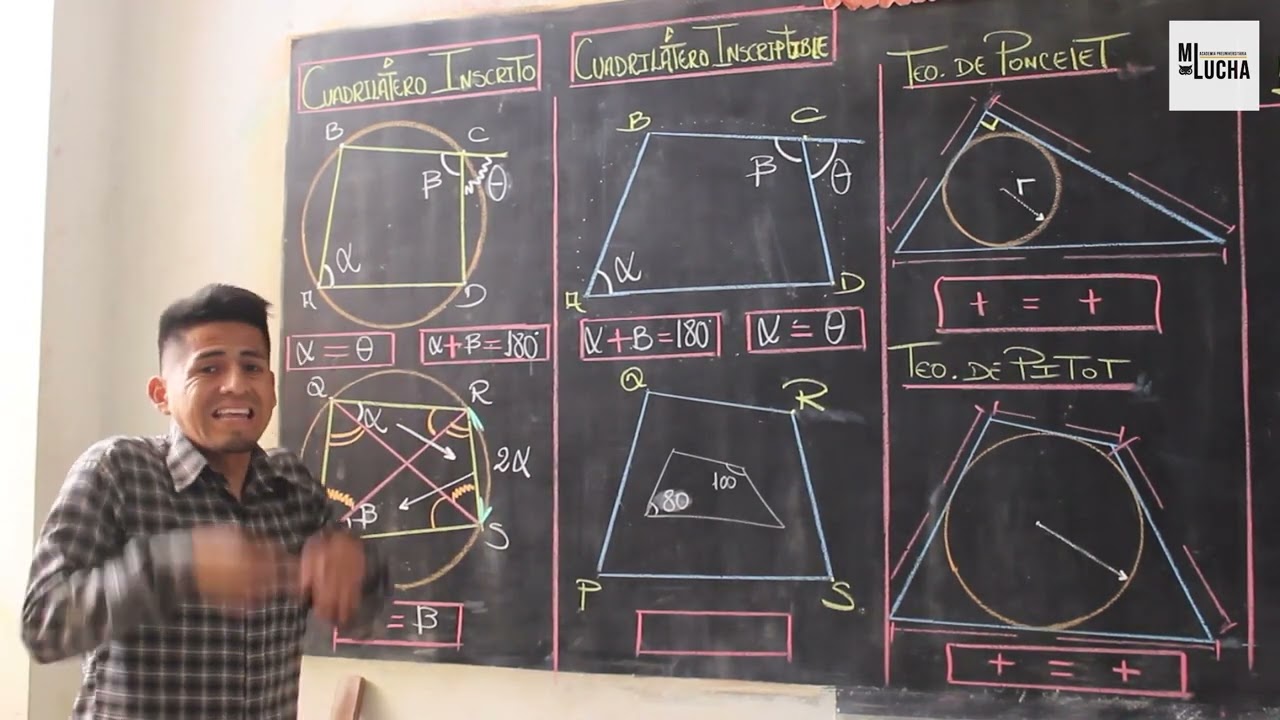 CUADRILÁTERO INSCRITO
B
C
β
θ
α
A
D
α = θ
α + β = 180°
Q
R
α
2α
β
S
= β
CUADRILÁTERO INSCRIPTIBLE
B
C
β
θ
α
A
D
α + β = 180°
α = θ
Q
R
100
80
P
S
TEO. DE PONCELET
r
+ = +
TEO. DE PITOT
+ = +
MI LUCHA
ACADEMIA PREUNIVERSITARIA